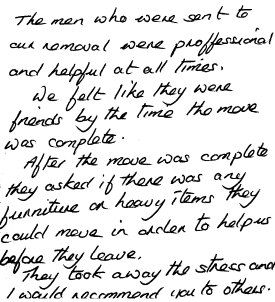 The men who were sent to
our removal were proffessional
and helpful at all times.
We felt like they were
friends by the time the move
was complete.
After the move was complete
they asked if there was any
furniture or heavy items they
could move in order to help us
before they leave.
They took away the stress and
I would recommend you to others.